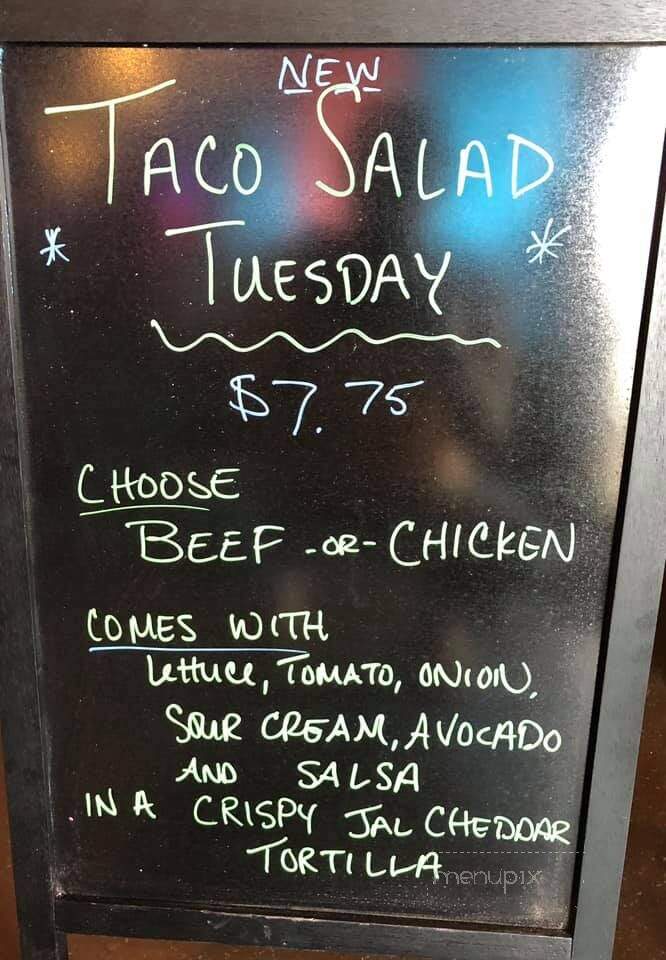 NEW
TACO SALAD
* TUESDAY *
$7.75
CHOOSE
BEEF -OR- CHICKEN
COMES WITH
Lettuce, TOMATO, ONION,
SOUR CREAM, AVOCADO
AND SALSA
IN A CRISPY JAL CHEDDAR
TORTILLA
menupix